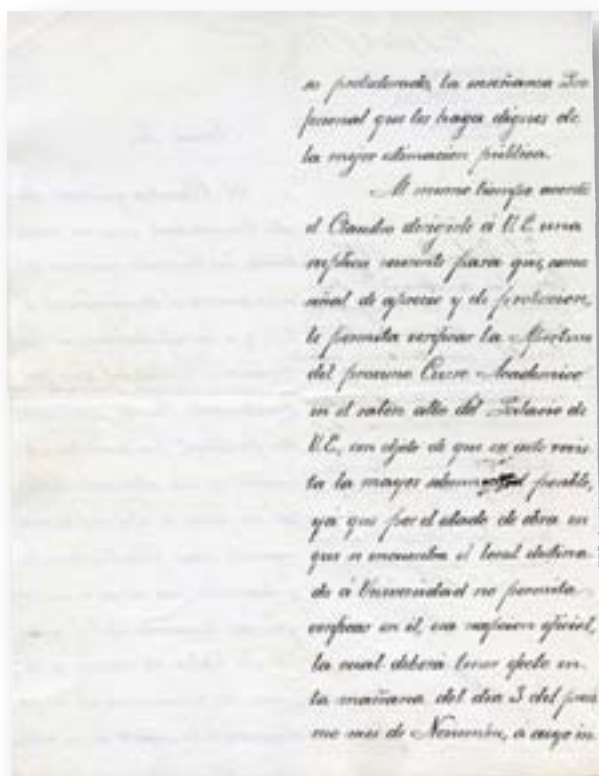 su protectorado, la enseñanza Pro
fesional que les haga dignos de
la mejor estimación pública.
Al mismo tiempo acordó
el Claustro dirigirse á V.E. una
súplica reverente para que, como
señal de aprecio y de protección,
le permita verificar la Apertura
del proximo Curso Academico
en el salón alto del Palacio de
V.E., con objeto de que ese acto revis
ta la mayor posible,
ya que por el estado de obra en
que se encuentra el local destina
do á Universidad no permita
verificar en él, esa función oficial,
la cual deberá tener efecto en
la mañana del dia 3 del próxi
mo mes de Noviembre, á cuyo in